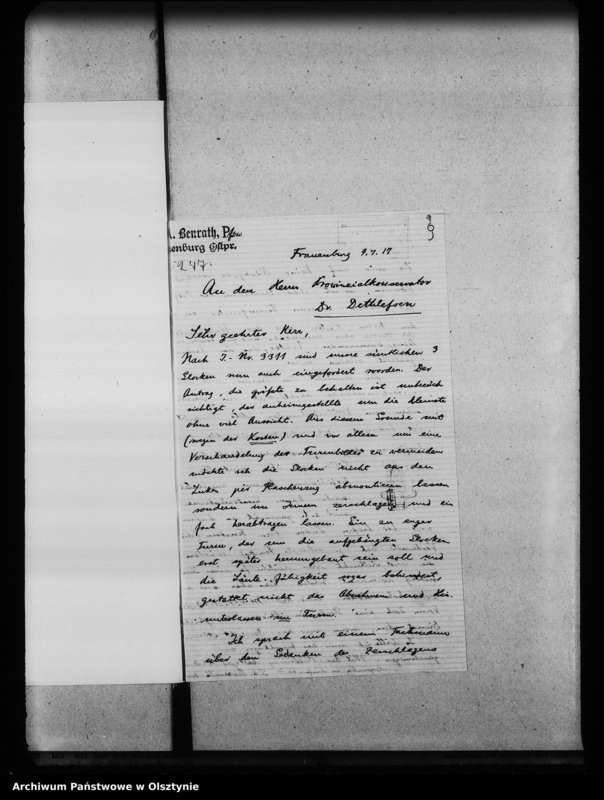 A. Benrath, Pfr
enburg Ostpr.
247.
Frauenburg 9.7.17
An den Herrn Provinzialkonservator
Dr. Dethlefsen
Sehr geehrter Herr,
Nach J-Nr. 3311 sind unsre sämtlichen 3
Glocken nun auch eingefordert worden. Der
Antrag, die größte zu behalten ist unberück
sichtigt, der anheimgestellte um die kleinste
ohne viel Aussicht. Aus diesem Grunde mit
(wegen der Kosten) und vor allem um eine
Verschandelung des Turmes zu vermeiden
möchte ich die Glocken nicht aus den
Luken per Flaschenzug abmontieren lassen
sondern im Innern zerschlagen und ein
fach herabtragen lassen. Ein zu enger
Turm, der um die aufgehängten Glocken
erst später herumgebaut sein soll und
die Läute-fähigkeit
gestattet nicht das und Her
unterlassen im Turm.
Ich sprach mit einem Fachmann
über den Gedanken des Zerschlagens
Archiwum Państwowe w Olsztynie